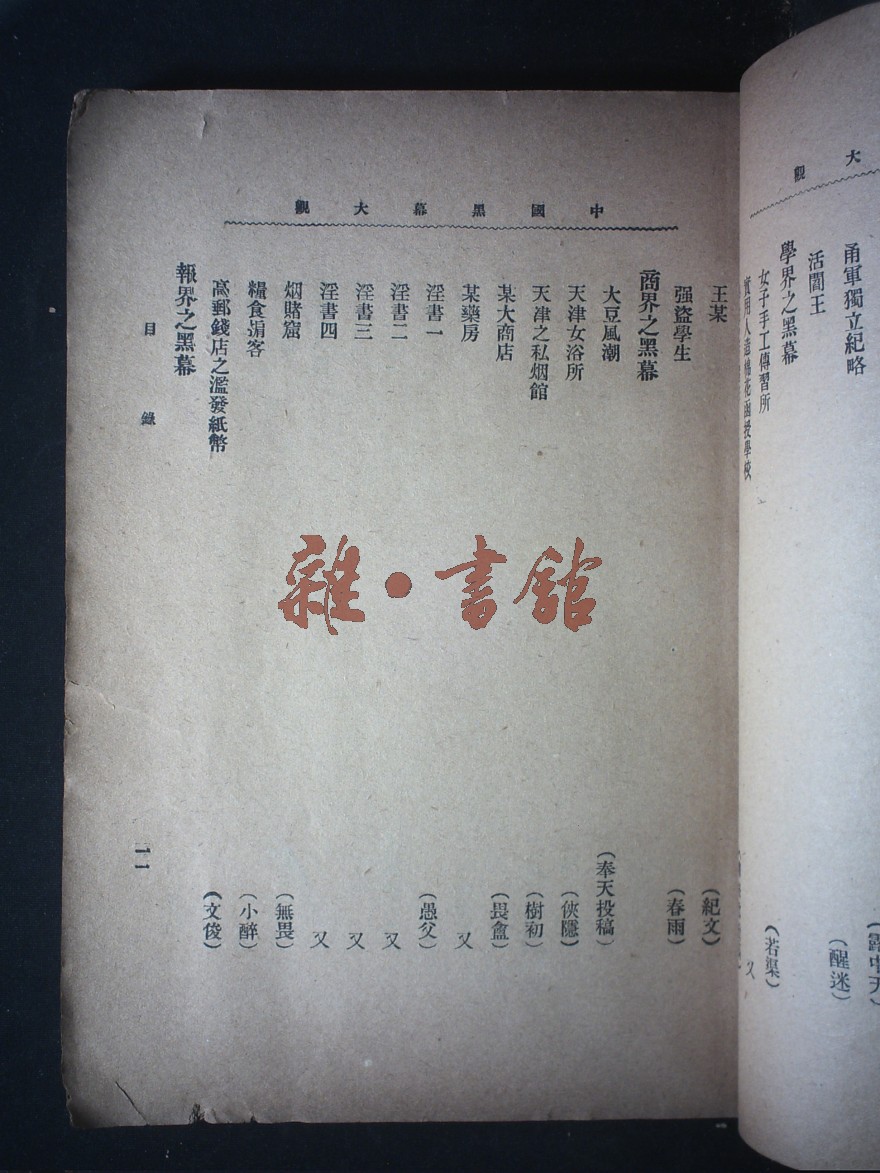 大觀
甬軍獨立紀略
活閻王 (醒迷)
學界之黑幕
女子手工傳習所 (若渠)
實用人造棉花函授學校 又
中國黑幕大觀
王某 (紀文)
强盜學生 (春雨)
商界之黑幕
大豆風潮 (奉天投稿)
天津女浴所 (俠隱)
天津之私烟館 (樹初)
某大商店 (畏盦)
某藥房 又
淫書一 (愚父)
淫書二 又
淫書三 又
淫書四 又
烟賭窟 (無畏)
糧食掮客 (小醉)
高郵錢店之濫發紙幣 (文俊)
報界之黑幕
目錄
一一
雜·書館